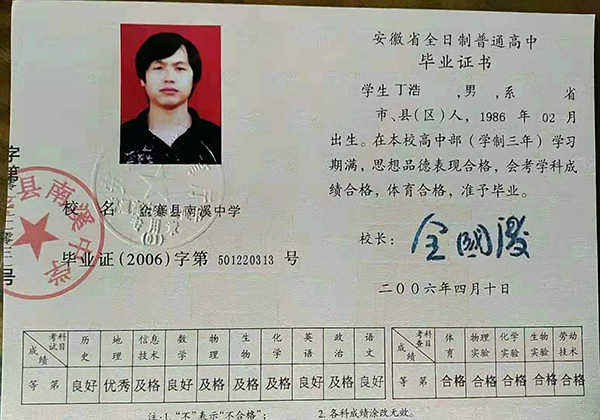 安徽省全日制普通高中
毕业证书
学生丁浩 ,男,系 省
市、县(区)人,1986 年 02 月
出生。在本校高中部(学制三年)学习
期满,思想品德表现合格,会考学科成
绩合格,体育合格,准予毕业。
校长:
二〇〇六年四月十日
校 名 金寨县南溪中学
毕业证(2006)字第 501220313 号
县南溪中学
字第
号
考试科目 成绩 历史 地理 信息技术 数学 物理 生物 化学 英语 政治 语文
等 第 良好 优秀 及格 及格 及格 及格 及格 良好 良好 良好
考查科目 成绩 体育 物理实验 化学实验 生物实验 劳动技术
等 第 合格 合格 合格 合格 合格
注:1."不"表示"不合格"; 2.各科成绩涂改无效。